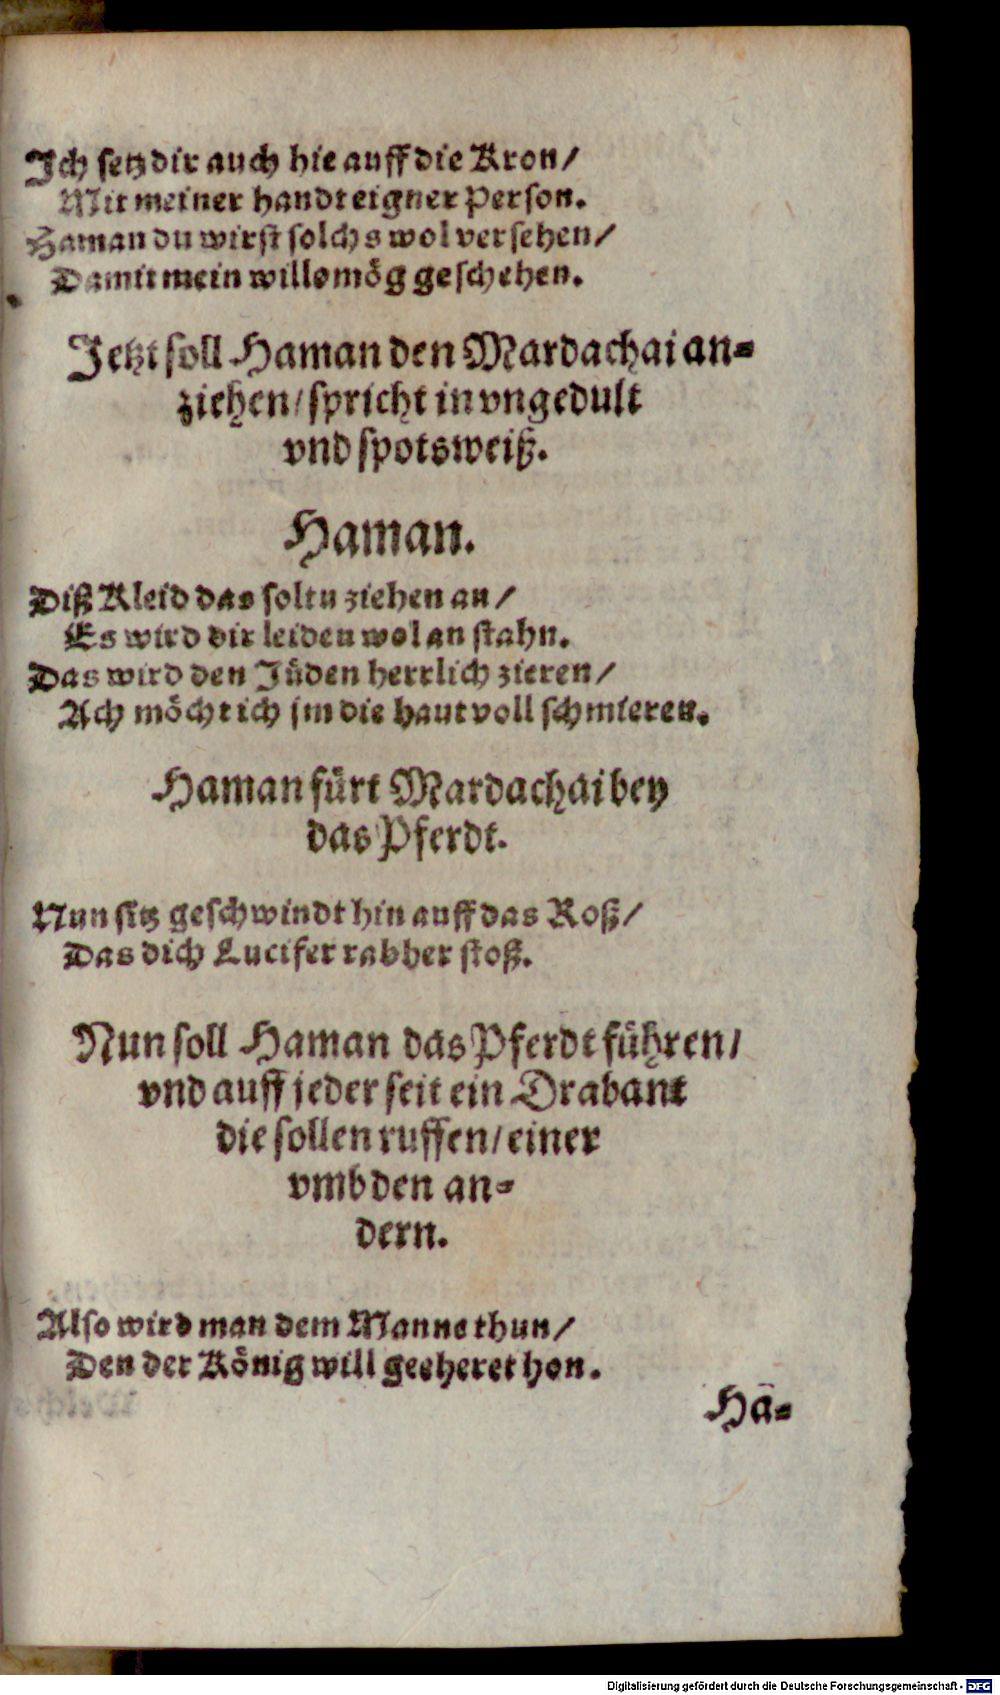 Ich setz dir auch hie auff die Kron/
Mit meiner handt eigner Person.
Haman du wirst solchs wol versehen/
Damit mein wille mög geschehen.
Jetzt soll Haman den Mardachai an-
ziehen/ spricht in vngedult
vnd spotsweiß.
Haman.
Diß Kleid das soltu ziehen an/
Es wird dir leiden wol an stahn.
Das wird den Jüden herrlich zieren/
Ach möcht ich jm die haut voll schmieren.
Haman fürt Mardachai bey
das Pferdt.
Nun sitz geschwindt hin auff das Roß/
Das dich Lucifer rabher stoß.
Nun soll Haman das Pferdt führen/
vnd auff jeder seit ein Drabant
die sollen ruffen/ einer
vmb den an-
dern.
Also wird man dem Manne thun/
Den der König will geeheret hon.
Hä-
Digitalisierung gefördert durch die Deutsche Forschungsgemeinschaft - DFG